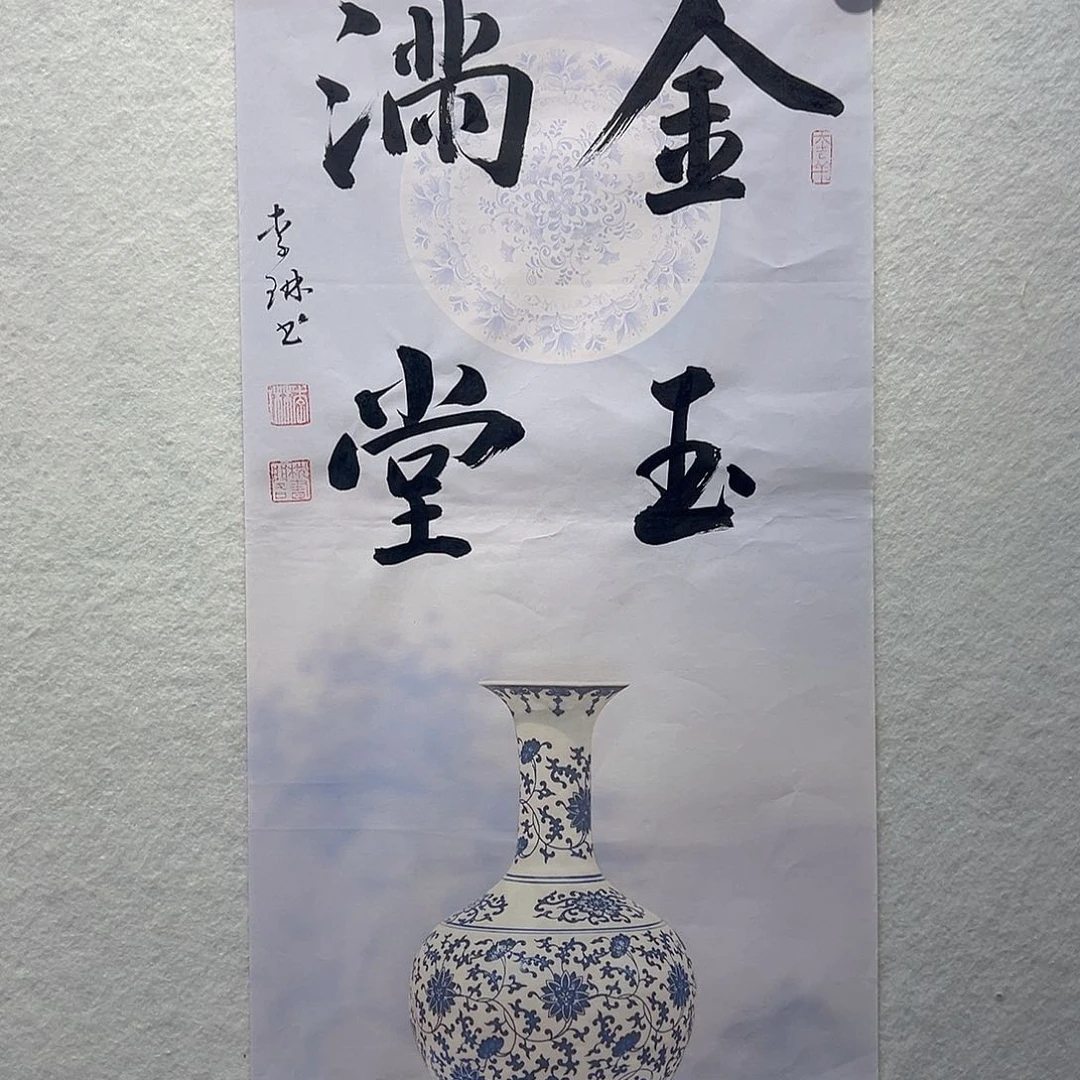 金玉
满堂
李琳书